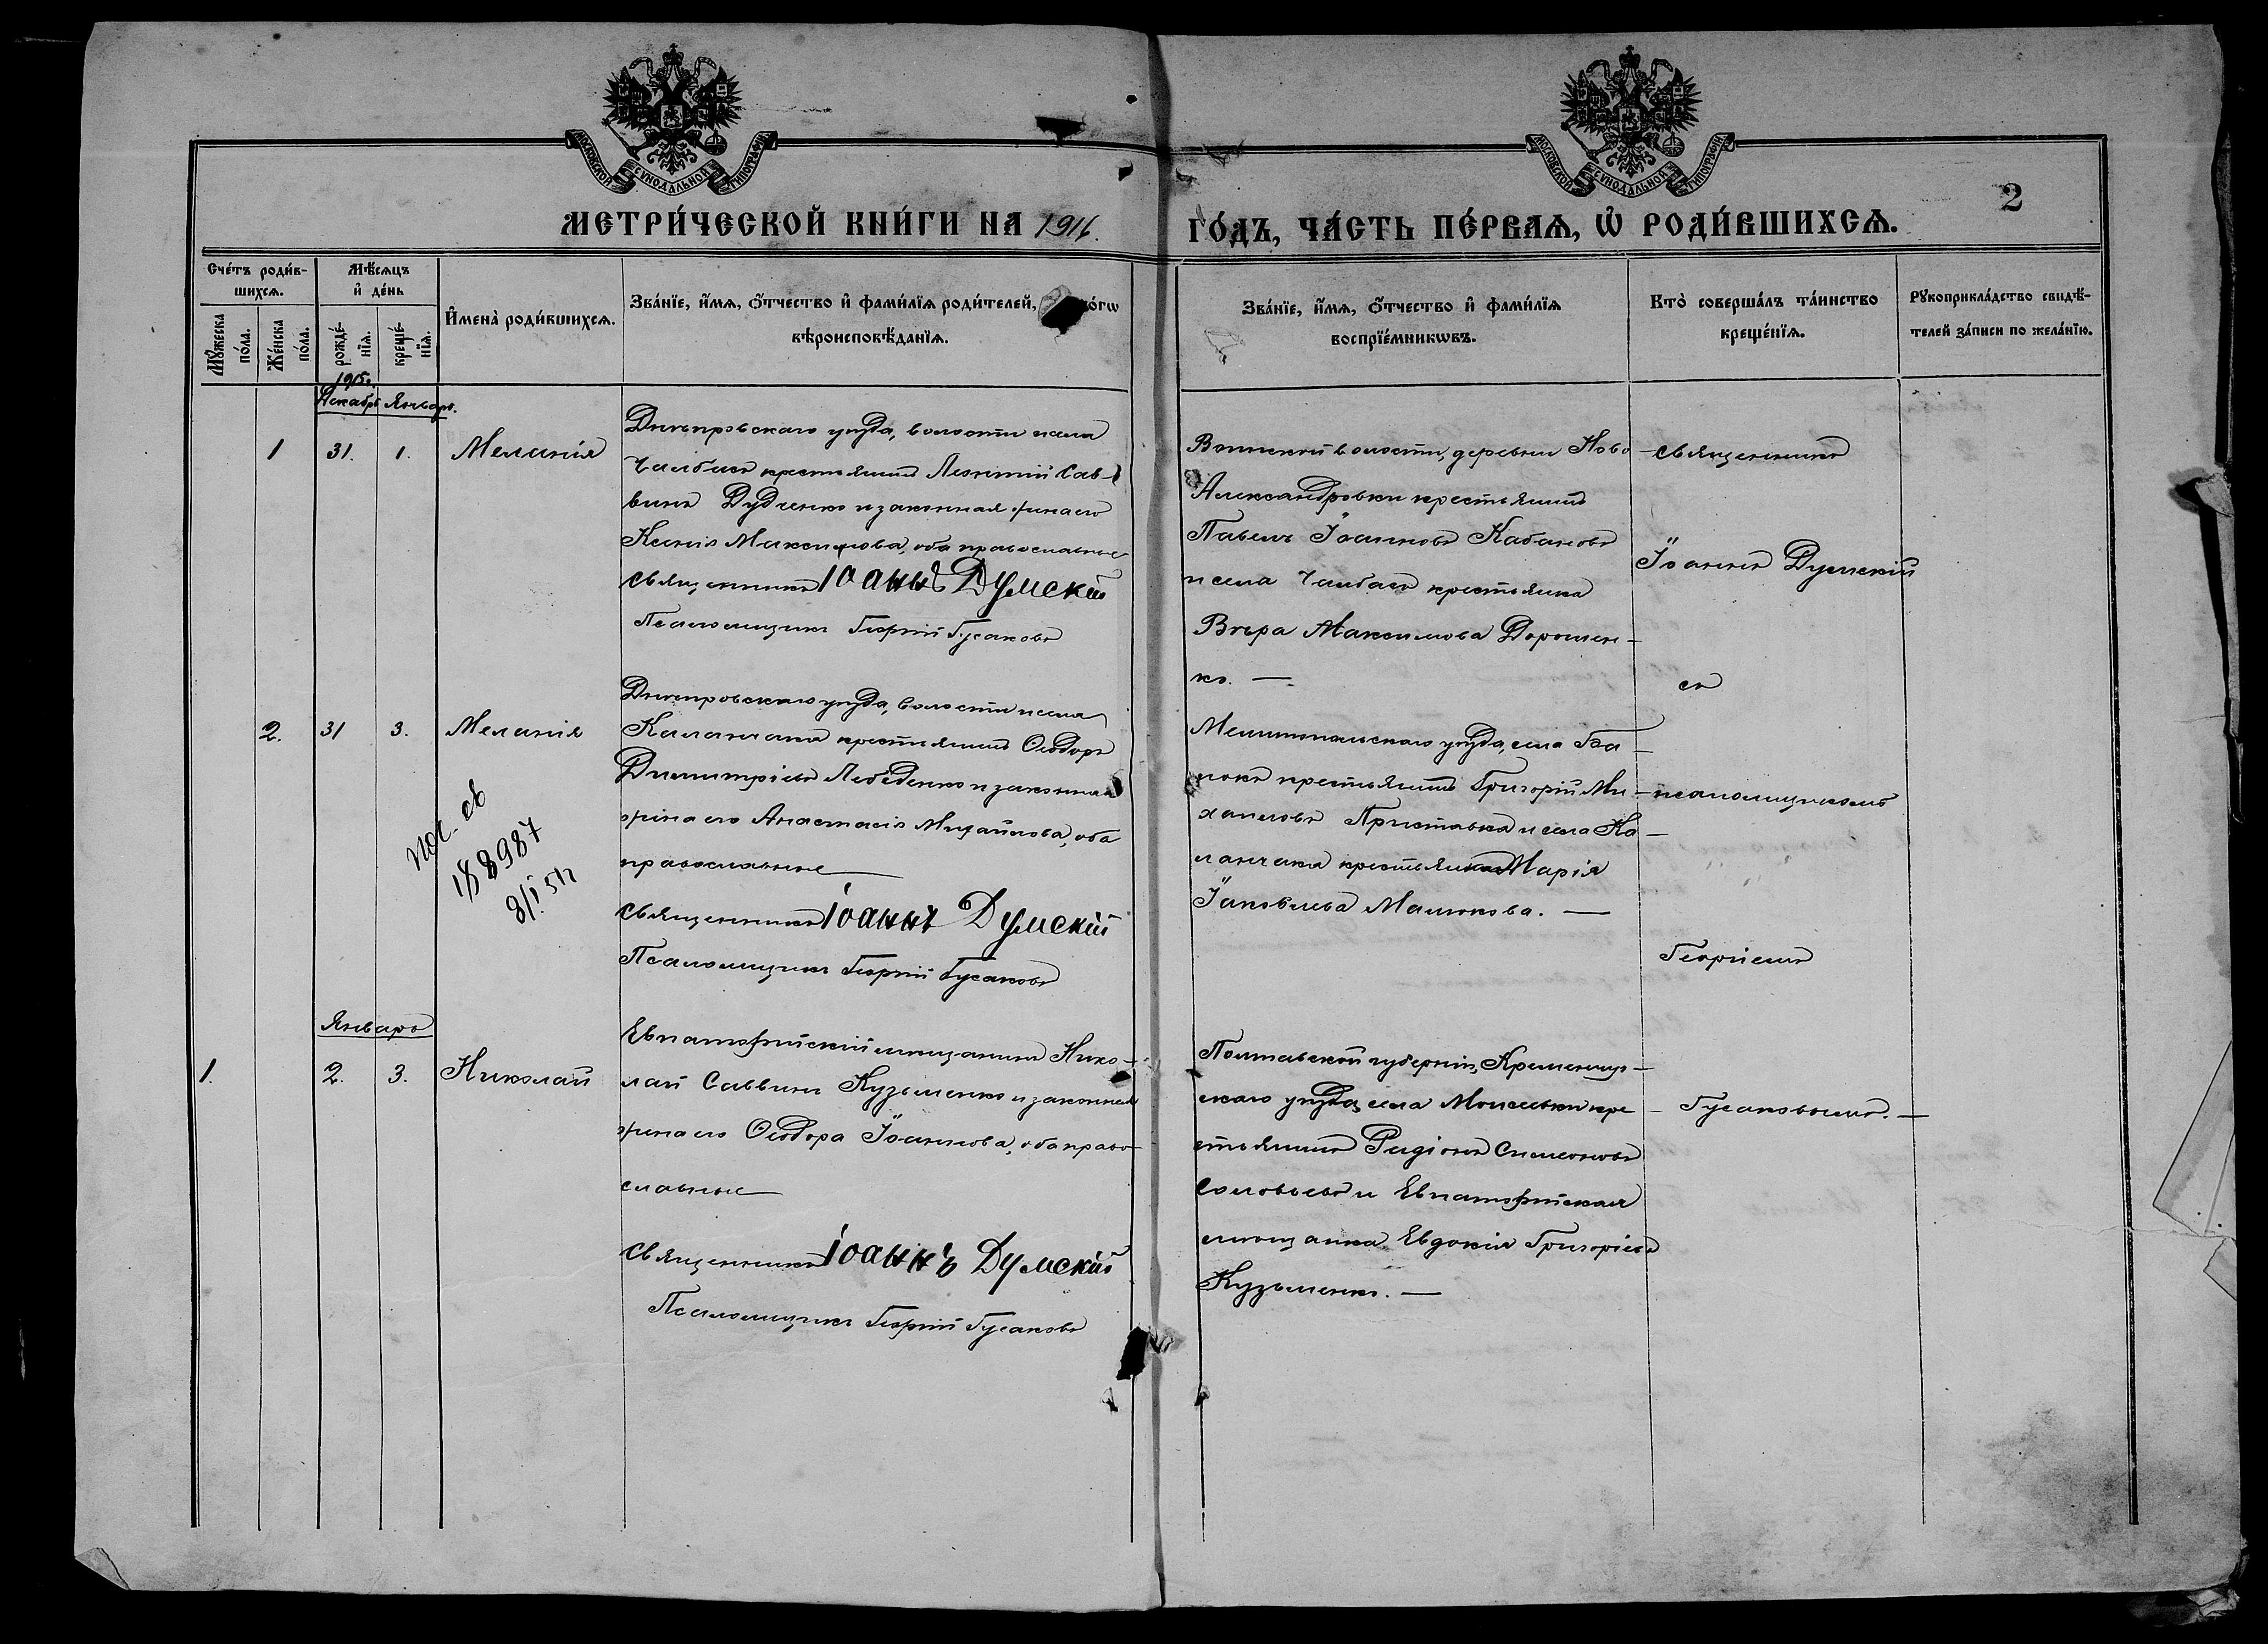 МОСКОВСКОЙ СѴНОДАЛЬНОЙ ТИПОГРАФИИ
МОСКОВСКОЙ СѴНОДАЛЬНОЙ ТИПОГРАФИИ
2
МЕТРИ́ЧЕСКОЙ КНИ́ГИ НА 1916. ГО́ДЪ, ЧА́СТЬ ПЕ́РВАѦ, Ѡ҆ РОДИ́ВШИХСѦ.
Сче́тъ роди́в-
шихсѧ.
Мꙋ́жеска по́ла.
Же́нска по́ла.
Мѣ́сѧцъ
и҆ де́нь
рожде́-
нїѧ.
креще́-
нїѧ.
И҆мена̀ роди́вшихсѧ.
Зва́нїе, и҆́мѧ, ѻ҆́тчество и҆ фами́лїѧ роди́телей,
вѣроисповѣ́данїѧ.
Зва́нїе, и҆́мѧ, ѻ҆́тчество и҆ фами́лїѧ
воспрїе́мникѡвъ.
Кто̀ соверша́лъ та́инство
креще́нїѧ.
Рꙋкоприкла́дство свидѣ́-
телей за́писи по жела́нїю.
1915 г.
Декабрь Январь.
1 31. 1. Меланія
Днѣпровскаго уѣзда, волости и села
Чалбасъ крестьянинъ Леонтій Сав-
винъ Дудченко и законная жена его
Ксенія Максимова, оба православные
Священникъ Іоаннъ Думскій
Псаломщикъ Георгій Гусаковъ
Воинской волости, деревни Ново-
Александровки крестьянинъ
Павелъ Іоанновъ Кабановъ
и села Чалбасъ крестьянка
Вѣра Максимова Дорошен-
ко. —
Священникъ
Іоаннъ Думскій
съ
псаломщикомъ
Георгіемъ
Гусаковымъ. —
2. 31 3. Меланія
Днѣпровскаго уѣзда, волости и села
Каланчака крестьянинъ Ѳеодоръ
Димитріевъ Лебеденко и законная
жена его Анастасія Михайлова, оба
православные
Священникъ Іоаннъ Думскій
Псаломщикъ Георгій Гусаковъ
188987
Мелитопольскаго уѣзда, села Ба-
локъ крестьянинъ Григорій Ми-
хаиловъ Приставка и села Ка-
ланчака крестьянка Марія
Іаковлева Малюкова. —
Январь
1. 2. 3. Николай
Евпаторійскій мѣщанинъ Нико-
лай Саввинъ Кузьменко и законная
жена его Ѳеодора Іоаннова, оба право-
славные
Священникъ Іоаннъ Думскій
Псаломщикъ Георгій Гусаковъ
Полтавской губерніи, Кременчуг-
скаго уѣзда, села Моисеевки кре-
стьянинъ Родіонъ Симеоновъ
Соловьевъ и Евпаторійская
мѣщанка Евдокія Григоріева
Кузьменко. —